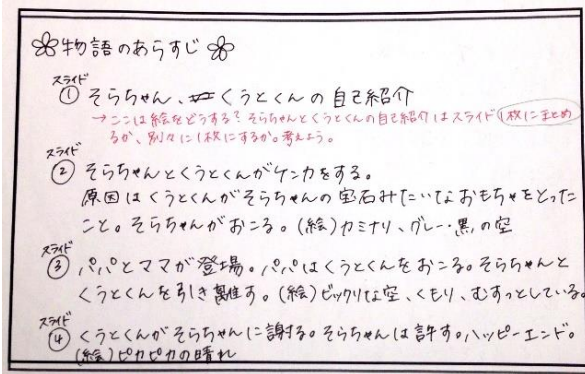 物語のあらすじ
スライド
① そらちゃん、くうとくんの自己紹介
→ここは絵をどうする?そらちゃんとくうとくんの自己紹介はスライド1枚にまとめ
るか、別々に1枚にするか。考えよう。
スライド
② そらちゃんとくうとくんがケンカをする。
原因はくうとくんがそらちゃんの宝石みたいなおもちゃをとった
こと。そらちゃんがおこる。(絵)カミナリ、グレー・黒の空
スライド
③ パパとママが登場。パパはくうとくんをおこる。そらちゃんと
くうとくんを引き離す。(絵)ビックリな空、くもり、むすっとしている。
スライド
④ くうとくんがそらちゃんに謝る。そらちゃんは許す。ハッピーエンド。
(絵)ピカピカの晴れ